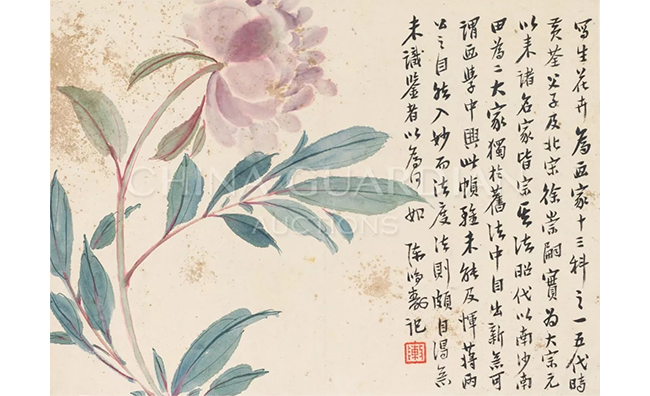 寫生花卉為画家十三科之一五代時
黃荃父子及北宋徐崇嗣實為大宗元
以来諸名家皆宗其法昭代以南沙南
田為二大家獨於舊法中自出新意可
謂画學中興此幀雖未能及惲蔣兩
公之自然入妙而法度法則頗自
未識鑒者以為何如 陳記
CHINA GUARDIAN
AUCTIONS